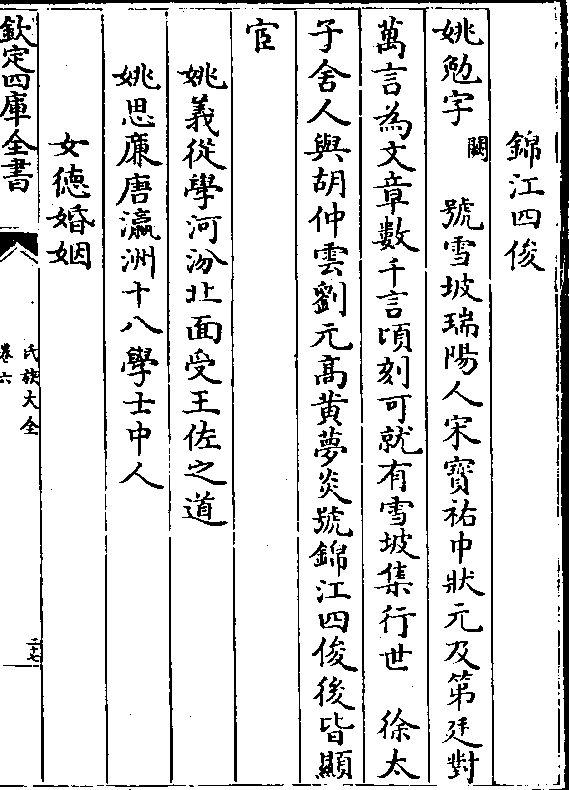 錦江四俊
姚勉字闕號雪坡瑞陽人宋寶祐中狀元及第廷對
萬言為文章數千言頃刻可就有雪坡集行世　徐太
子舍人與胡仲雲劉元高黄夢炎號錦江四俊後皆顯
宦
姚義從學河汾北面受王佐之道
姚思廉唐瀛洲十八學士中人
女徳婚姻
欽定四庫全書
氏族大全
卷六
二十七